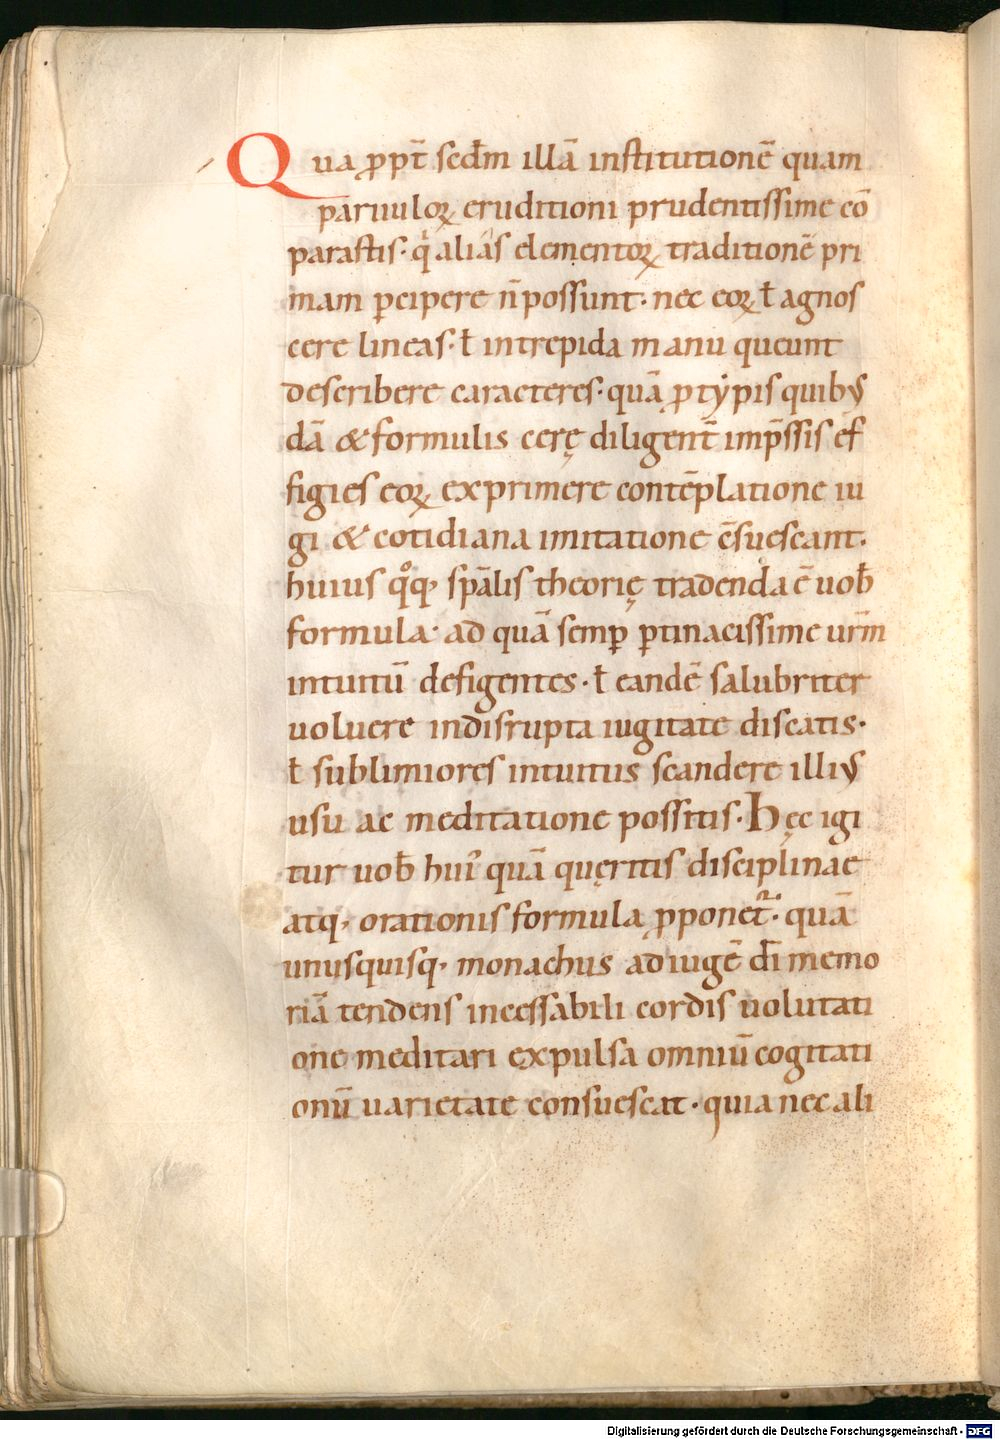 Qua ꝓpt̄ secđm illā institutionē quam
paruuloꝝ eruditioni prudentissime cō
parastis· qͥ aliás elementoꝝ traditionē pri
mam ꝑcipere n̄ possunt· nec eoꝝ ł agnos
cere lineas· ł intrepida manu queunt
describere caracteres· quā ꝓtẏpis quibꝰ
dā & formulis cerę diligent̄ imp̄ssis ef
figies eoꝝ exprimere contēplatione iu
gi & cotidiana imitatione c̄suescant·
huius qͦq· sp̄alis theorię tradenda ē uob̄
formula· ad quā semꝑ ꝑtinacissime ur̄m
intuitū defigentes· ł eandē salubriter
uoluere indisrupta iugitate discatis·
ł sublimiores intuitus scandere illiꝰ
usu ac meditatione possitis· Hęc igi
tur uob̄ huiꝰ quā quęritis disciplinae
atq· orationis formula ꝓponet᷑· quā
unusquisq· monachus ad iugē dī memo
riā tendens incessabili cordis uolutati
one meditari expulsa omniū cogitati
onū uarietate consuescat· quia nec ali
Digitalisierung gefördert durch die Deutsche Forschungsgemeinschaft - DFG